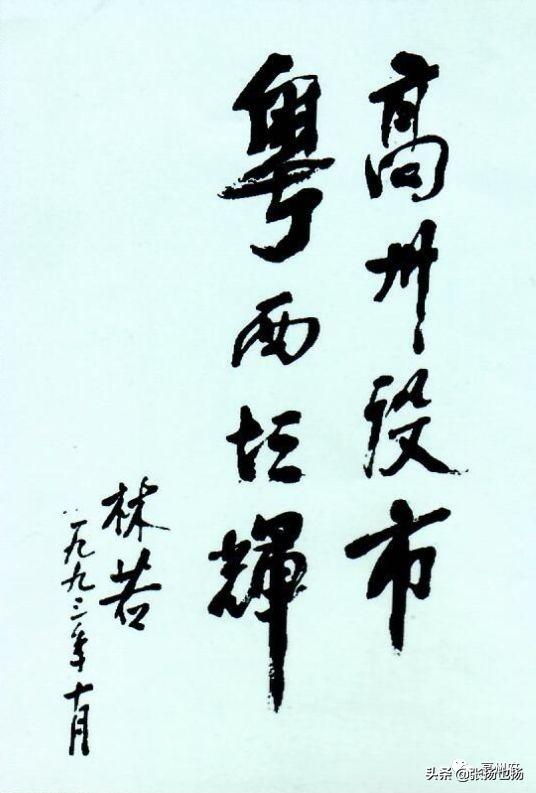 高州设市
粤西輝
林若
一九九三年十月
头条 @张扬也扬